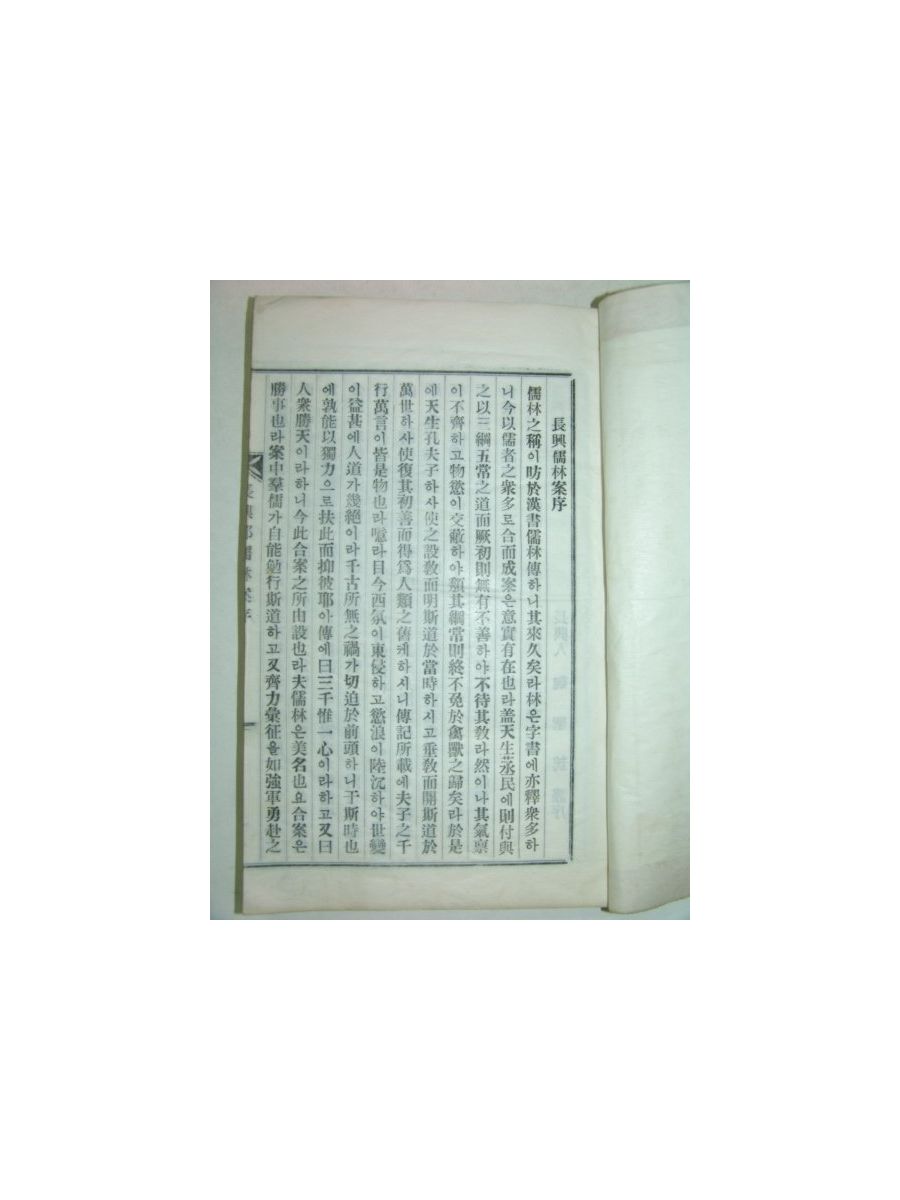 長興儒林案序
儒林之稱이昉於漢書儒林傳하니其來久矣라林은字書에亦釋衆多하
니今以儒者之衆多로合而成案은意實有在也라盖天生烝民에則付與
之以三綱五常之道而厥初則無有不善하야不待其敎라然이나其氣禀
이不齊하고物慾이交蔽하야纇其綱常則終不免於禽獸之歸矣라於是
에天生孔夫子하사使之設敎而明斯道於當時하시고垂敎而開斯道於
萬世하사使復其初善而得爲人類之舊케하시니傳記所載에夫子之千
行萬言이皆是物也라噫라目今西氛이東侵하고慾浪이陸沉하야世變
이益甚에人道가幾絕이라千古所無之禍가切迫於前頭하니于斯時也
에孰能以獨力으로扶此而抑彼耶아傳에曰三千惟一心이라하고又曰
人衆勝天이라하니今此合案之所由設也라夫儒林은美名也요合案은
勝事也라案中羣儒가自能勉行斯道하고又齊力彙征을如強軍勇赴之